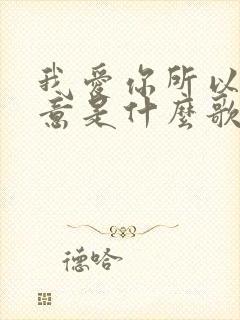 我愛你所以
意是什麼歌
德哈